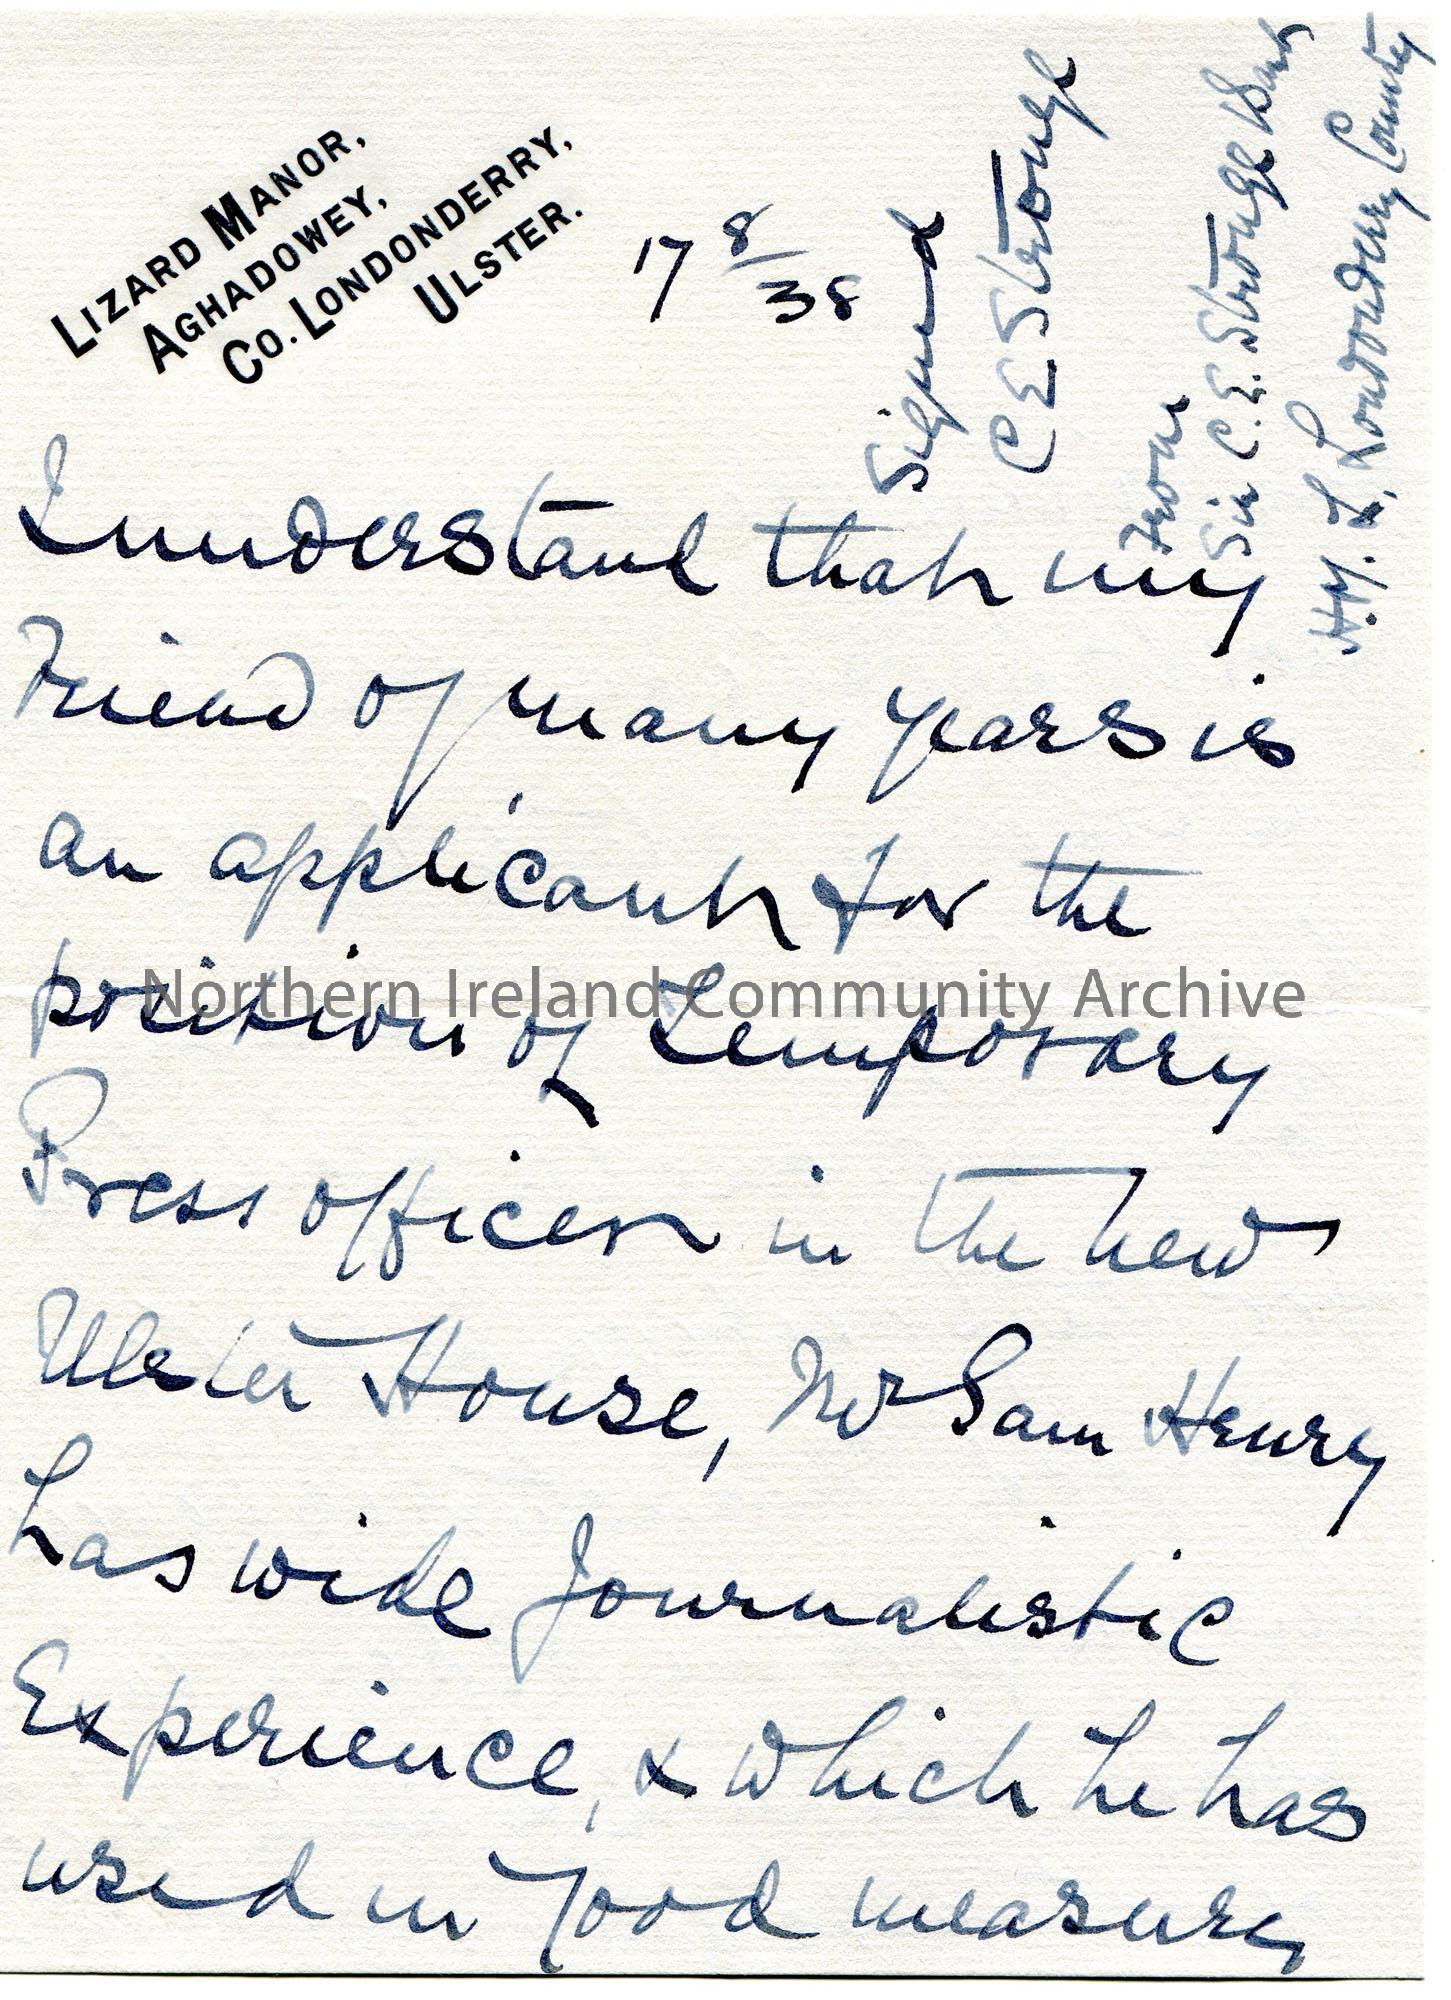 LIZARD MANOR,
AGHADOWEY,
CO. LONDONDERRY,
ULSTER.
17 8/38
Signed
C E Stronge
From
Sir C. E. Stronge Bart
H.M. L. Londonderry County
I understand that my
Friend of many years is
an applicant for the
position of Temporary
Press officer in the new
Ulster House, Mr Sam Henry
has wide Journalistic
Experience, & which he has
used in good measure
Northern Ireland Community Archive